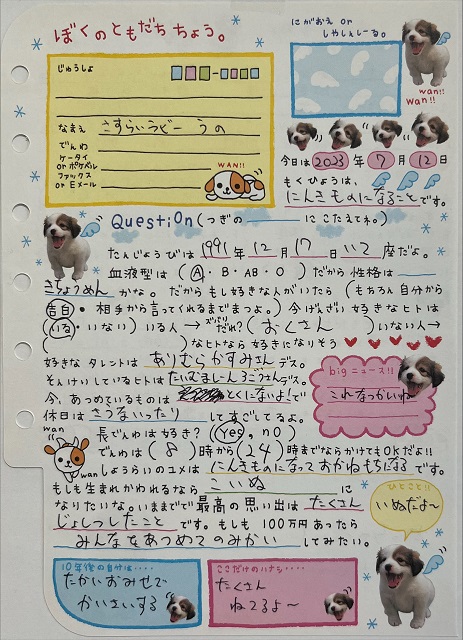 ぼくのともだち ちょう。
にがおえ or
しゃしんしーる。
じゅうしょ
なまえ さすらいラビー うの
でんわ
ケータイ
or ポケベル
ファックス
or Eメール
WAN!!
wan!!
WAN!!
今日は 2023 年 7 月 12 日
もくひょうは、
にんきものになること です。
Question (つぎの にこたえてネ。)
たんじょうびは 1991 年 12 月 17 日 いて 座だよ。
血液型は (A・B・AB・O) だから 性格は
きちょうめん かな。だから もし好きな人がいたら (もちろん 自分から
告白・相手から言ってくれるまでまつよ。) 今げんざい 好きなヒトは
(いる・いない) いる人→ズバリだれ? (おくさん) いない人→
( ) なヒトなら 好きになりそう
好きな タレントは ありむらかすみさん デス。
そんけいしているヒトは たいむましーん3ごうさん デス。
今、あつめているものは とくにないよ! で
休日は きうないったり してすごしてるよ。
big ニュース!!
これなつかいね
wan
wan
長でんわは好き? (Yes, nO)
でんわは (8) 時から (24) 時までならかけてもOKだよ!!
しょうらいのユメは にんきものになっておかねもちになる です。
もしも 生まれかわれるなら こいぬ に
なりたいな。いままでで最高の思い出は たくさん
じょしつしたこと です。もしも 100万円あったら
みんなをあつめてのみかい してみたい。
ひとこと!!
いぬだよ〜
10年後の自分は・・・・
たかいおみせで
かいさいする
ここだけのハナシ・・・・
たくさん
ねてるよ〜